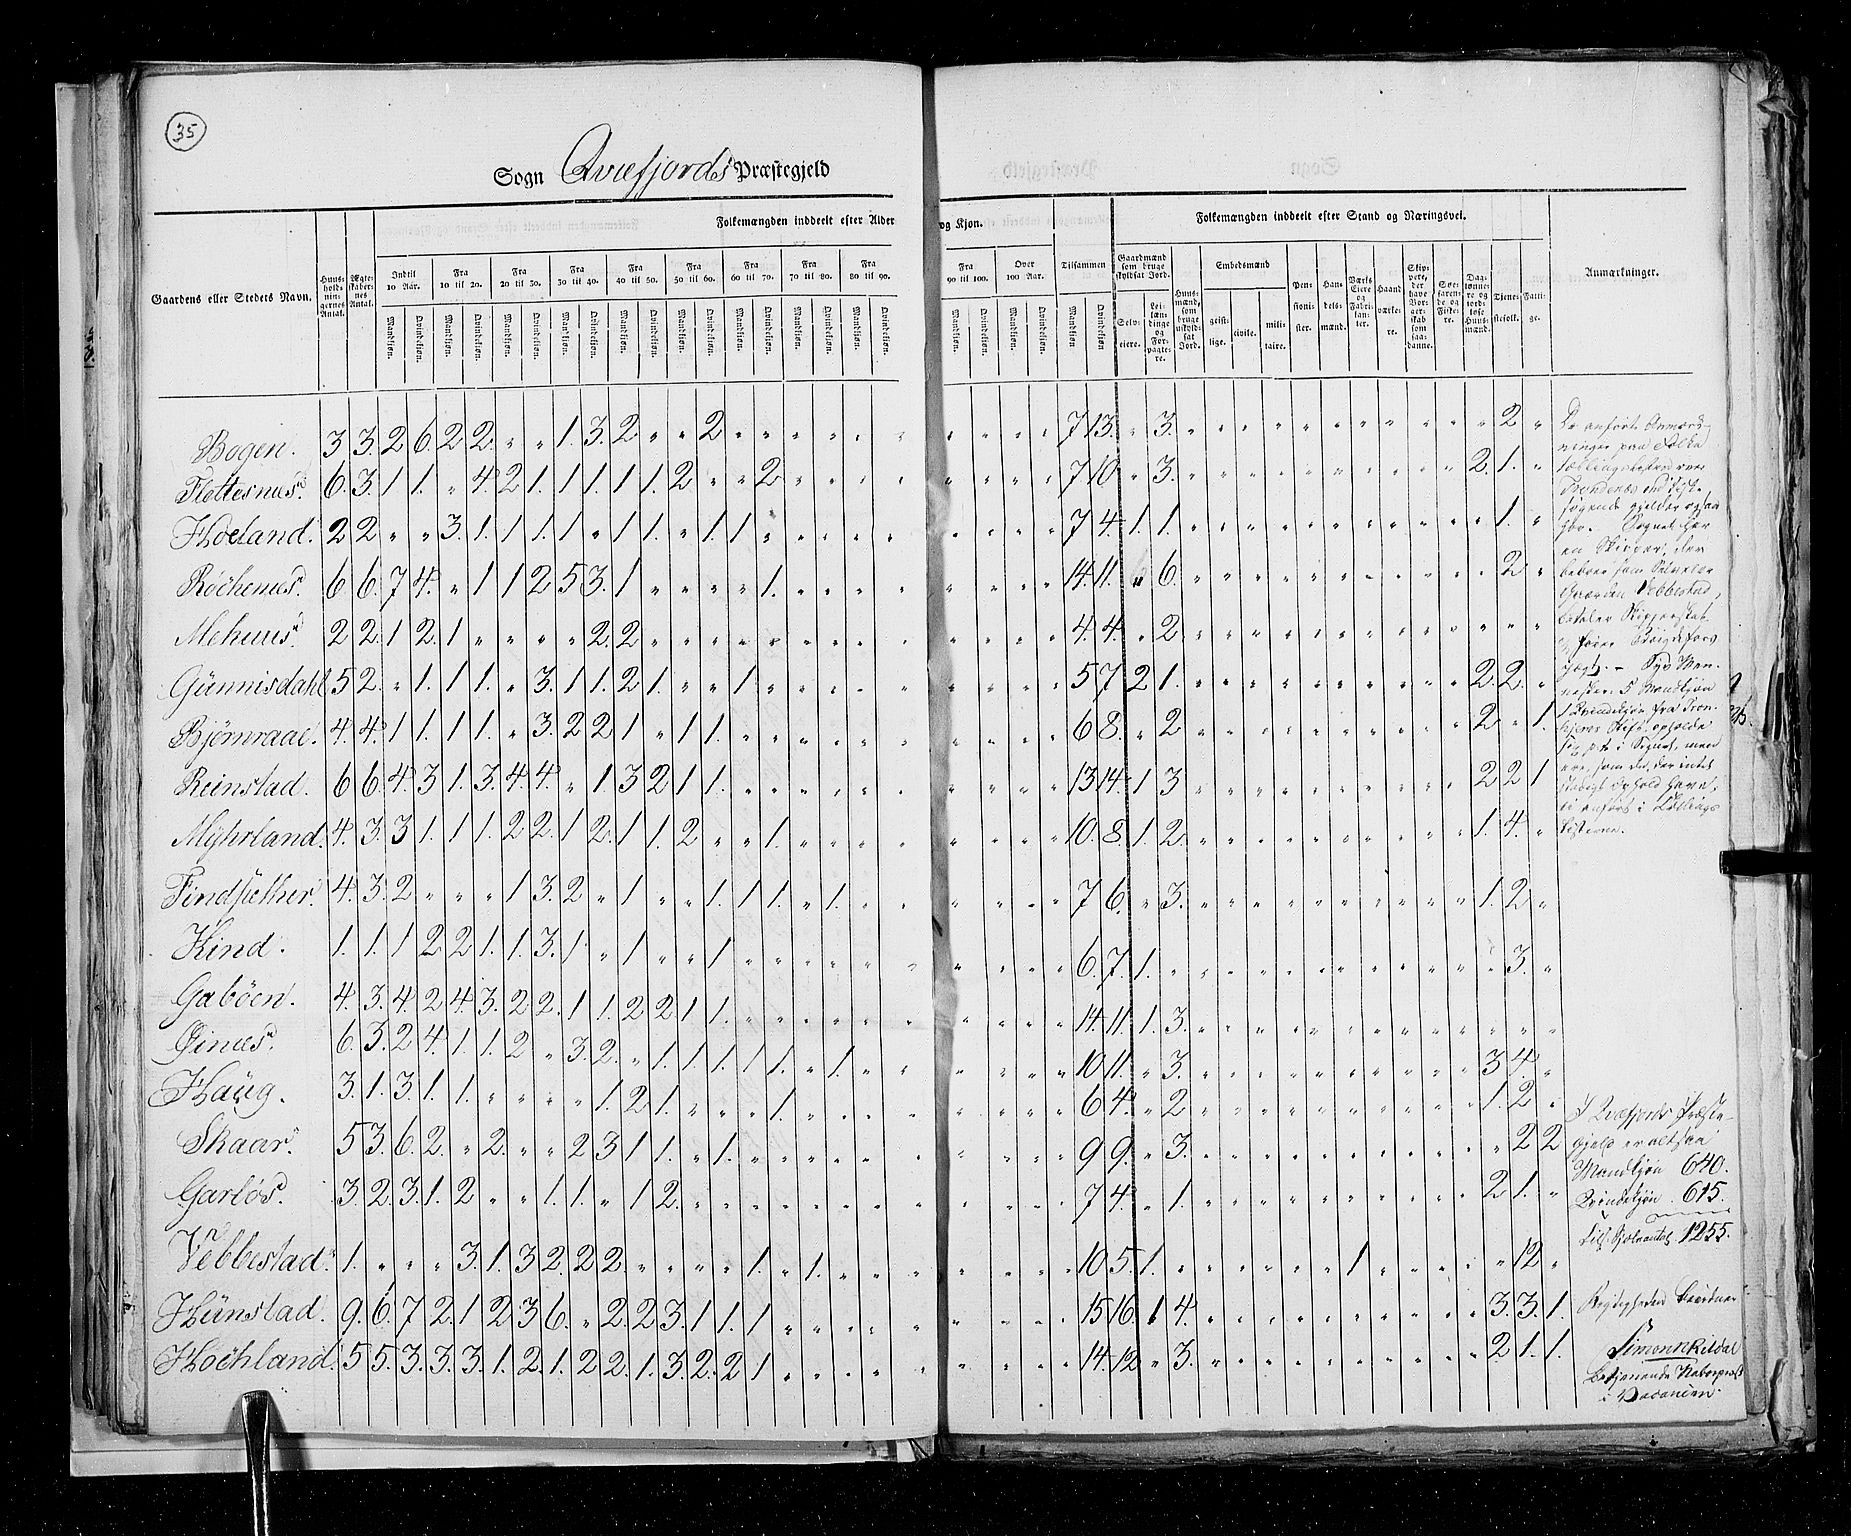 35
Sogn Qvæfjords Præstegjeld
Sogn Præstegjeld
Folkemængden inddeelt efter Alder og Kjøn.
Folkemængden inddeelt efter Stand og Næringsvei.
Gaardens eller Stedets Navn.
Huus-holdningernes Antal.
Ægteskabernes Antal.
Indtil 10 Aar.
Fra 10 til 20.
Fra 20 til 30.
Fra 30 til 40.
Fra 40 til 50.
Fra 50 til 60.
Fra 60 til 70.
Fra 70 til 80.
Fra 80 til 90.
Fra 90 til 100.
Over 100 Aar.
Tilsammen
Mandkjøn. Qvindekjøn.
Gaardmænd som bruge skyldsat Jord.
Selveiere.
Leilændinge og Forpagtere.
Huusmænd, som bruge uskyldsat Jord.
Embedsmænd
geistlige.
civile.
militaire.
Pensionister.
Handelsmænd.
Værks Eiere og Fabrikanter.
Haandværkere.
Skippere, der have Borgerskab som saadanne.
Søefarende og Fiskere.
Daglønnere og jordløse Huusmænd.
Tjenestefolk.
Fattige.
Anmærkninger.
Bogen. 3 3. 2 6. 2 2. „ „ 1. 3. 2 „ „ 2 „ „ „ „ „ „ „ „ „ 7 13. „ 3. „ „ „ „ „ „ „ „ „ „ „ 2 „
Flettesnæs. 6. 3. 1 1. „ 4. 2 1. 1 1. 1 1. 2 „ „ 2 „ „ „ „ „ „ „ 7 10. „ 3. „ „ „ „ „ „ „ „ „ „ 2. 1. „
Hoeland. 2 2 „ „ 3. 1. 1 1. 1 „ 1 1. „ 1. 1 „ „ „ „ „ „ „ „ 7 4. 1. 1. „ „ „ „ „ „ „ „ „ „ „ 1. „
Röchenes. 6 6. 7 4. „ 1 1 2 5 3. 1 „ „ „ „ 1. „ „ „ „ „ „ „ 14. 11. „ 6. „ „ „ „ „ „ „ „ „ „ „ 2 „
Mehuus. 2 2. 1 2. 1 „ „ „ „ 2. 2 „ „ „ „ „ „ „ „ „ „ „ „ 4. 4. „ 2 „ „ „ „ „ „ „ „ „ „ „ „ „
Günnisdahl 5 2. „ 1. 1 1. „ 3. 1 1. 2 1. „ „ 1 „ „ „ „ „ „ „ „ 5 7. 2 1. „ „ „ „ „ „ „ „ „ „ 2. 2. „
Bjørnraae. 4. 4. 1 1. 1 1. „ 3. 2 2 1 „ 1 1. „ „ „ „ „ „ „ „ 6 8. „ 2 „ „ „ „ „ „ „ „ „ „ 2 „ 1.
Reinstad. 6 6. 4. 3 1. 3. 4 4. „ 1. 3 2 1 1. „ „ „ „ „ „ „ „ 13 14. 1 3 „ „ „ „ „ „ „ „ „ „ 2 2 1
Myhrland. 4. 3. 3 1. 1 1. 2 2. 1 2. 1 1. 2 „ „ 1. „ „ „ „ „ „ „ 10. 8. 1. 2. „ „ „ „ „ „ „ „ „ „ 1. 4. „
Findsæther. 4. 3. 2 „ „ „ 1 3. 2 „ 1 „ „ 1. 1 1. „ 1. „ „ „ „ „ 7 6. „ 3. „ „ „ „ „ „ „ „ „ „ 1. 2 „
Kind. 1. 1. 1 2 2 1. 1. 3. 1 „ 1 „ „ 1 „ „ „ „ „ „ „ „ „ 6. 7. 1. „ „ „ „ „ „ „ „ „ „ „ „ 3. „
Gaböen. 4. 3. 4 2 4. 3. 2 2. 1 1. 2 2 1 1. „ „ „ „ „ „ „ „ „ 14. 11. 1. 3. „ „ „ „ „ „ „ „ „ „ „ „ „
Øinæs. 6. 3. 2 4. 1 1. 2 „ 3. 2. „ 1. 1 1. 1 1. „ 1. „ „ „ „ „ 10 11. „ 3. „ „ „ „ „ „ „ „ „ „ 3 4. „
Haüg. 3. 1. 3. 1. 1. „ „ „ „ 1. 2 1. „ „ „ 1. „ „ „ „ „ „ „ 6 4. „ 2 „ „ „ „ „ „ „ „ „ „ 1. 2 „
Skaar. 5 3. 6. 2. „ 2. „ „ 2 3 1 1. „ 1. „ „ „ „ „ „ „ „ „ 9 9. „ 3. „ „ „ „ „ „ „ „ „ „ „ 2 2
Garlös. 3. 2 3. 1. 2 „ „ 1. 1. „ 1 2. „ „ „ „ „ „ „ „ „ „ „ 7 4. „ 1. „ „ „ „ „ „ „ „ „ „ 2 1. „
Vebbestad. 1. „ „ „ 3. 1. 3 2. 2 2. „ „ „ „ 1. „ 1. „ „ „ „ „ 10 5. 1. „ „ „ „ „ „ „ 1 „ „ „ „ 12 „
Hünstad. 9. 6. 7 2. 1 2 3 6. „ 2. 2 3. 1 1. 1 „ „ „ „ „ „ „ „ 15 16. 1 4. „ „ „ „ „ „ „ „ „ „ 3. 3. 1.
Hochland. 5 5. 3. 3. 3. 1. 2. 1. 2 2. 1. 3. 2. 2 1 „ „ „ „ „ „ „ „ 14. 12 „ 3. „ „ „ „ „ „ „ „ „ „ 2. 1. 1.
De anførte Anmærk-
ninger paa Folke
tællingslisten over
Trondenæs
søgende gjelder ogsaa
her. - Sognet har
en Skipper, der
beboer som Selveier
Gaarden Vebbestad,
betaler Skipperskat
og fører Bøigdefars
jægt. - Syv Men-
nesker: 5 Mandkjøn
Qvindekjøn fra Tron-
hjems Stift opholde
sig i Sognet, men
ere, som de, der intet
stadigt Ophold have,
ei anført i Tællings
listerne.
I Qvæfjords Præste-
gjeld er altsaa
Mandkjøn 640.
Qvindekjøn. 615.
Sjæleantal 1255.
Simon Kildal
i Vacancen.